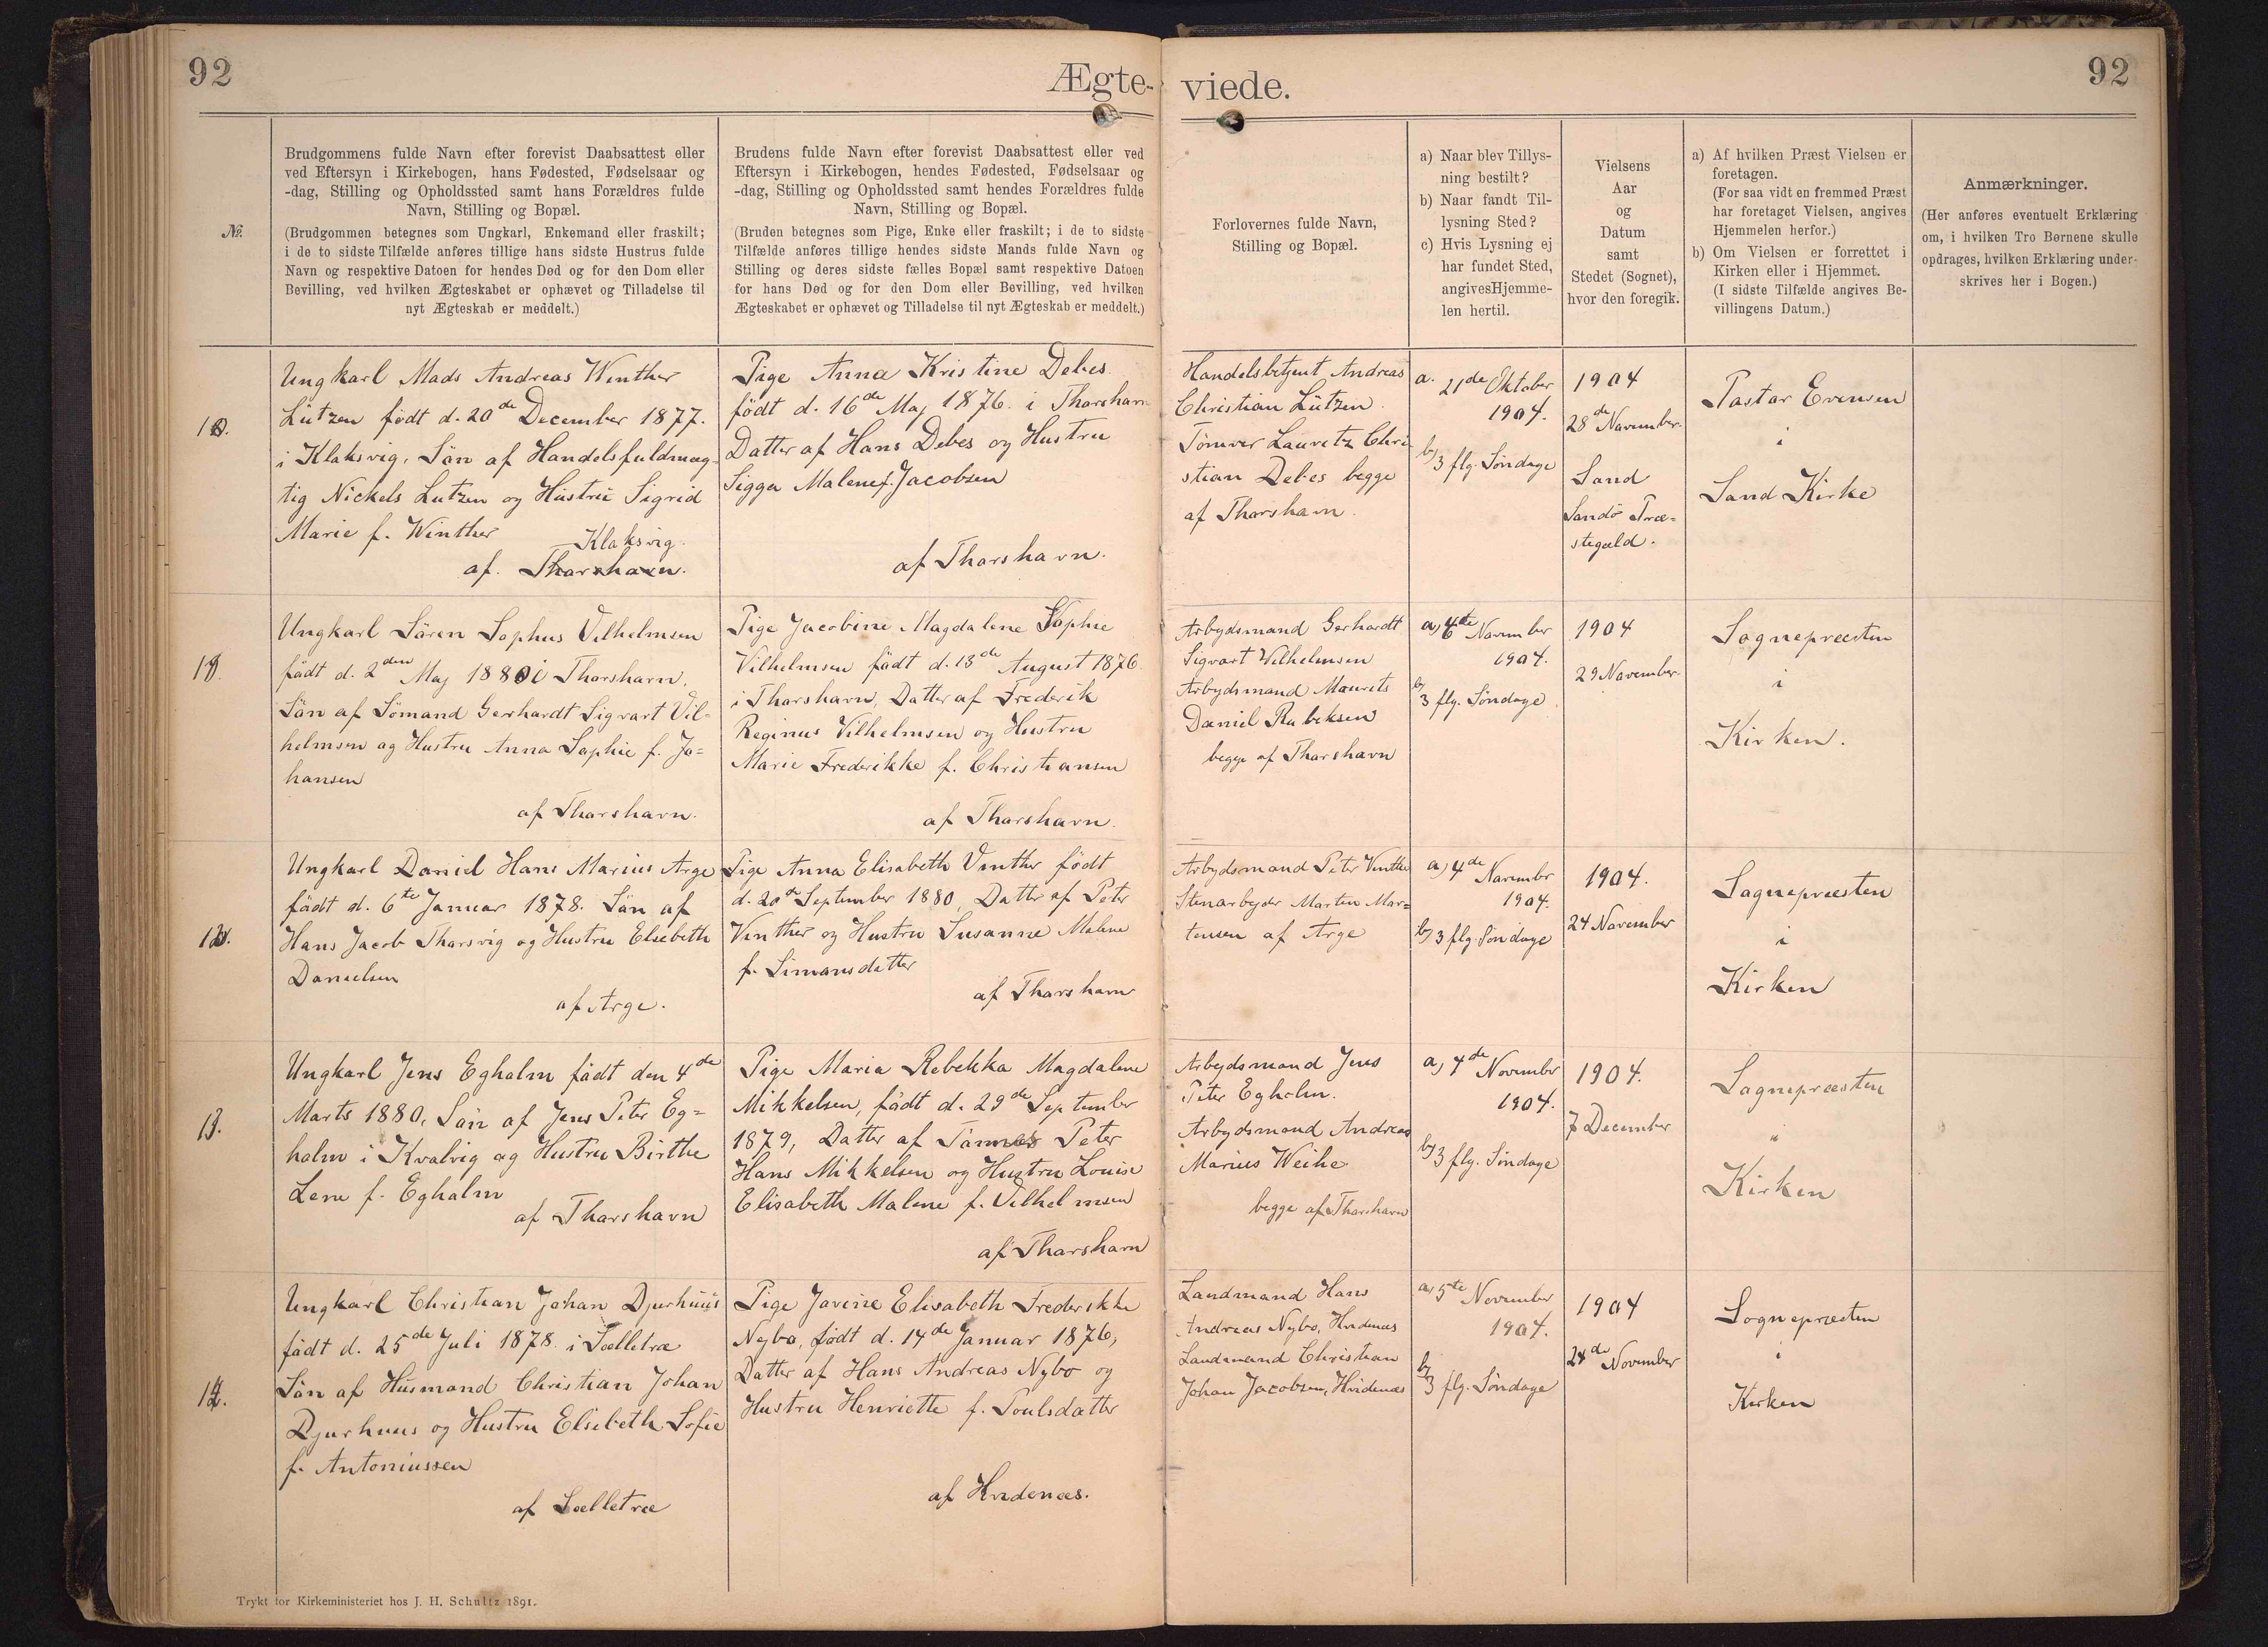 92
Ægte-
viede.
92
№.
Brudgommens fulde Navn efter forevist Daabsattest eller
ved Eftersyn i Kirkebogen, hans Fødested, Fødselsaar og
-dag, Stilling og Opholdssted samt hans Forældres fulde
Navn, Stilling og Bopæl.
(Brudgommen betegnes som Ungkarl, Enkemand eller fraskilt;
i de to sidste Tilfælde anføres tillige hans sidste Hustrus fulde
Navn og respektive Datoen for hendes Død og for den Dom eller
Bevilling, ved hvilken Ægteskabet er ophævet og Tilladelse til
nyt Ægteskab er meddelt.)
Brudens fulde Navn efter forevist Daabsattest eller ved
Eftersyn i Kirkebogen, hendes Fødested, Fødselsaar og
-dag, Stilling og Opholdssted samt hendes Forældres fulde
Navn, Stilling og Bopæl.
(Bruden betegnes som Pige, Enke eller fraskilt; i de to sidste
Tilfælde anføres tillige hendes sidste Mands fulde Navn og
Stilling og deres sidste fælles Bopæl samt respektive Datoen
for hans Død og for den Dom eller Bevilling, ved hvilken
Ægteskabet er ophævet og Tilladelse til nyt Ægteskab er meddelt.)
Forlovernes fulde Navn,
Stilling og Bopæl.
a) Naar blev Tillys-
ning bestilt?
b) Naar fandt Til-
lysning Sted?
c) Hvis Lysning ej
har fundet Sted,
angives Hjemme-
len hertil.
Vielsens
Aar
og
Datum
samt
Stedet (Sognet),
hvor den foregik.
a) Af hvilken Præst Vielsen er
foretagen.
(For saa vidt en fremmed Præst
har foretaget Vielsen, angives
Hjemmelen herfor.)
b) Om Vielsen er forrettet i
Kirken eller i Hjemmet.
(I sidste Tilfælde angives Be-
villingens Datum.)
Anmærkninger.
(Her anføres eventuelt Erklæring
om, i hvilken Tro Børnene skulle
opdrages, hvilken Erklæring under-
skrives her i Bogen.)
10.
Ungkarl Mads Andreas Winther
Lützen født d. 20de December 1877.
i Klaksvig, Søn af Handelsfuldmæg-
tig Nickels Lützen og Hustru Sigrid
Marie f. Winther
Klaksvig.
af. Thorshavn.
Pige Anna Kristine Debes
født d. 16de Maj 1876. i Thorshavn
Datter af Hans Debes og Hustru
Sigga Malene f. Jacobsen
af Thorshavn.
Handelsbetjent Andreas
Christian Lützen
Tømrer Lauretz Chri-
stian Debes begge
af Thorshavn.
a. 21de Oktober
1904.
b) 3 flg. Søndage
1904
28de November.
Sand
Sandø Præ-
stegæld.
Pastor Evensen
i
Sand Kirke
Ungkarl Søren Sophus Vilhelmsen
født d. 2den Maj 1880 i Thorshavn,
Søn af Sømand Gerhardt Sigvart Vil-
helmsen og Hustru Anna Sophie f. Jo-
hansen
af Thorshavn.
Pige Jacobine Magdalene Sophie
Vilhelmsen født d. 13de August 1876
i Thorshavn, Datter af Frederik
Reginus Vilhelmsen og Hustru
Marie Frederikke f. Christiansen
af Thorshavn.
Arbejdsmand Gerhardt
Sigvart Vilhelmsen
Arbejdsmand Maurits
Daniel Rubeksen
begge af Thorshavn
a) November
1904.
b) 3 flg. Søndage
1904
29 November.
Sognepræsten
i
Kirken.
Ungkarl Daniel Hans Marius Arge
født d. 6te Januar 1878. Søn af
Hans Jacob Thorsvig og Hustru Elsebeth
Danielsen
af Arge.
Pige Anna Elisabeth Vinther født
d. 20de September 1880, Datter af Peter
Vinther og Hustru Susanne Malene
f. Simonsdatter
af Thorshavn
Arbejdsmand Peter Vinther
Stenarbejder Marten Mar-
tensen af Arge
a) 4de November
1904.
b) 3 flg. Søndage
1904.
24 November
Sognepræsten
i
Kirken
13.
Ungkarl Jens Egholm født den 4de
Marts 1880, Søn af Jens Peter Eg-
holm i Kvalvig og Hustru Birthe
Lene f. Egholm
af Thorshavn
Pige Maria Rebekka Magdalene
Mikkelsen, født d. 29de September
1879, Datter af Peter
Hans Mikkelsen og Hustru Louise
Elisabeth Malene f. Vilhelmsen
af Thorshavn
Arbejdsmand Jens
Peter Egholm.
Arbejdsmand Andreas
Marius Weihe
begge af Thorshavn
a) 4de November
1904.
b) 3 flg. Søndage
1904.
7 December
Sognepræsten
"
Kirken
14.
Ungkarl Christian Johan Djurhuus
født d. 25de Juli 1878. i Sælletræ
Søn af Husmand Christian Johan
Djurhuus og Hustru Elsebeth Sofie
f. Antoniussen
af Sælletræ
Pige Javine Elisabeth Frederikke
Nybo, født d. 14de Januar 1876,
Datter af Hans Andreas Nybo og
Hustru Henriette f. Poulsdatter
af Hvidenæs.
Landmand Hans
Andreas Nybo, Hvidenæs
Landmand Christian
Johan Jacobsen, Hvidenæs
a) 5te November
1904.
b) 3 flg. Søndage
1904
24de November
Sognepræsten
i
Kirken
Trykt for Kirkeministeriet hos J. H. Schultz 1891.